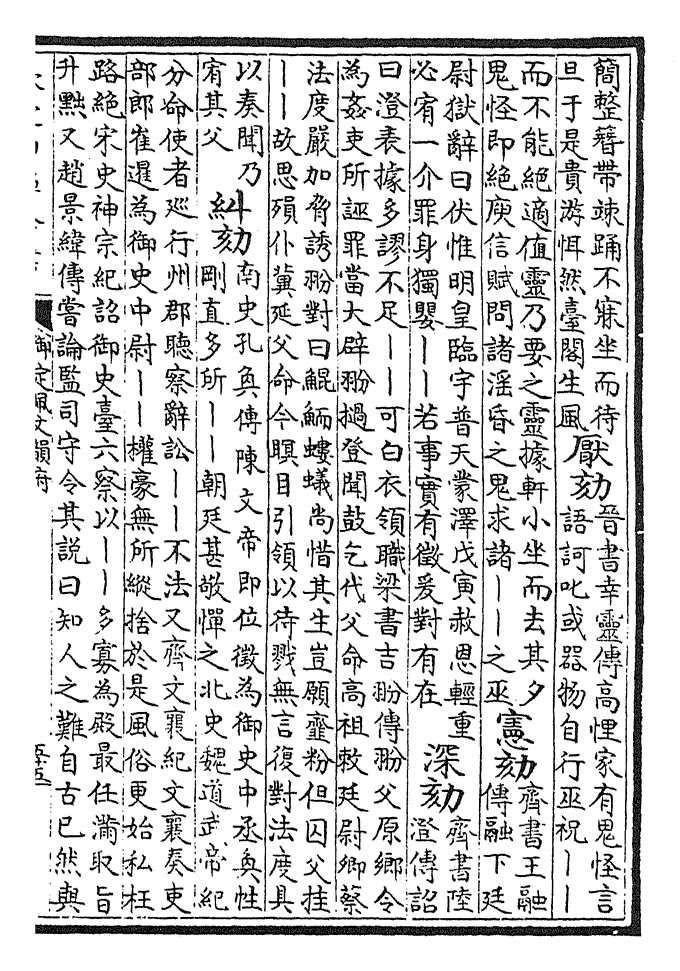 簡整簪帶竦踊不寐坐而待
旦于是貴游恇然臺閣生風
厭劾
晉書幸靈傳高悝家有鬼怪言
語訶叱或器物自行巫祝丨丨
而不能絕適值靈乃要之靈據軒小坐而去其夕
鬼怪即絕庾信賦問諸淫昏之鬼求諸丨丨之巫
憲劾
齊書王融
傳融下廷
尉獄辭曰伏惟明皇臨宇普天蒙澤戊寅赦恩輕重
必宥一介罪身獨嬰丨丨若事實有徵爰對有在
深劾
齊書陸
澄傳詔
曰澄表據多謬不足丨丨可白衣領職梁書吉翂傳翂父原鄉令
為姦吏所誣罪當大辟翂撾登聞鼓乞代父命高祖敕廷尉卿蔡
法度嚴加脅誘翂對曰鯤鮞螻蟻尚惜其生豈願齏粉但囚父挂
丨丨故思殞仆冀延父命今瞑目引領以待戮無言復對法度具
以奏聞乃
宥其父
糾劾
南史孔奐傳陳文帝即位徵為御史中丞奐性
剛直多所丨丨朝廷甚敬憚之北史魏道武帝紀
分命使者巡行州郡聽察辭訟丨丨不法又齊文襄紀文襄奏吏
部郎崔暹為御史中尉丨丨權豪無所縱捨於是風俗更始私枉
路絕宋史神宗紀詔御史臺六察以丨丨多寡為殿最任滿取旨
升黜又趙景緯傳嘗論監司守令其說曰知人之難自古已然與
御定佩文韻府